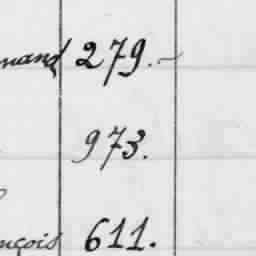 nand 279.-
973.
nçois 611.